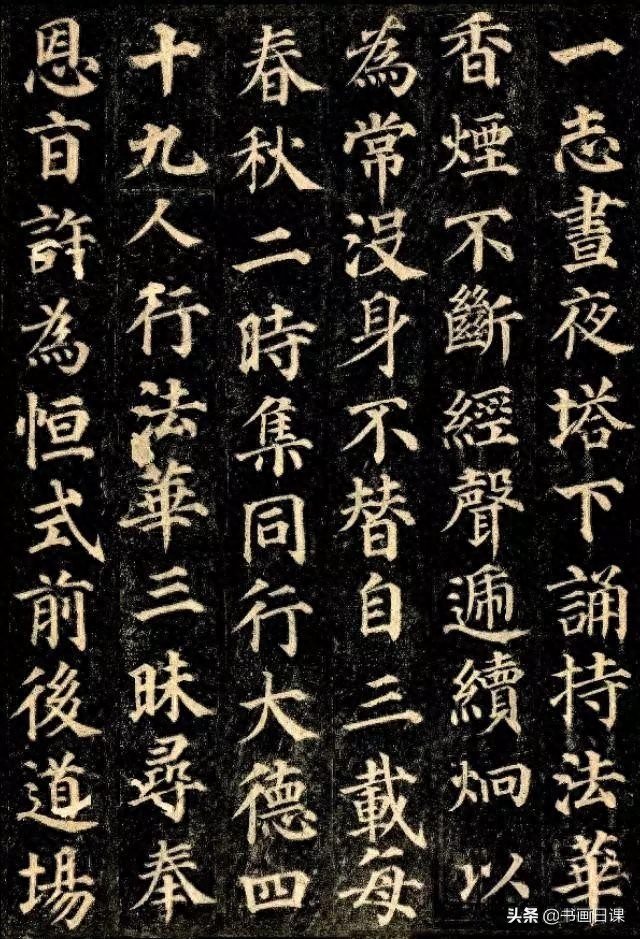 一志晝夜塔下誦持法華
香煙不斷經聲遞續炯以
為常没身不替自三載每
春秋二時集同行大德四
十九人行法華三昧尋奉
恩旨許為恒式前後道場
头条 @书画日课